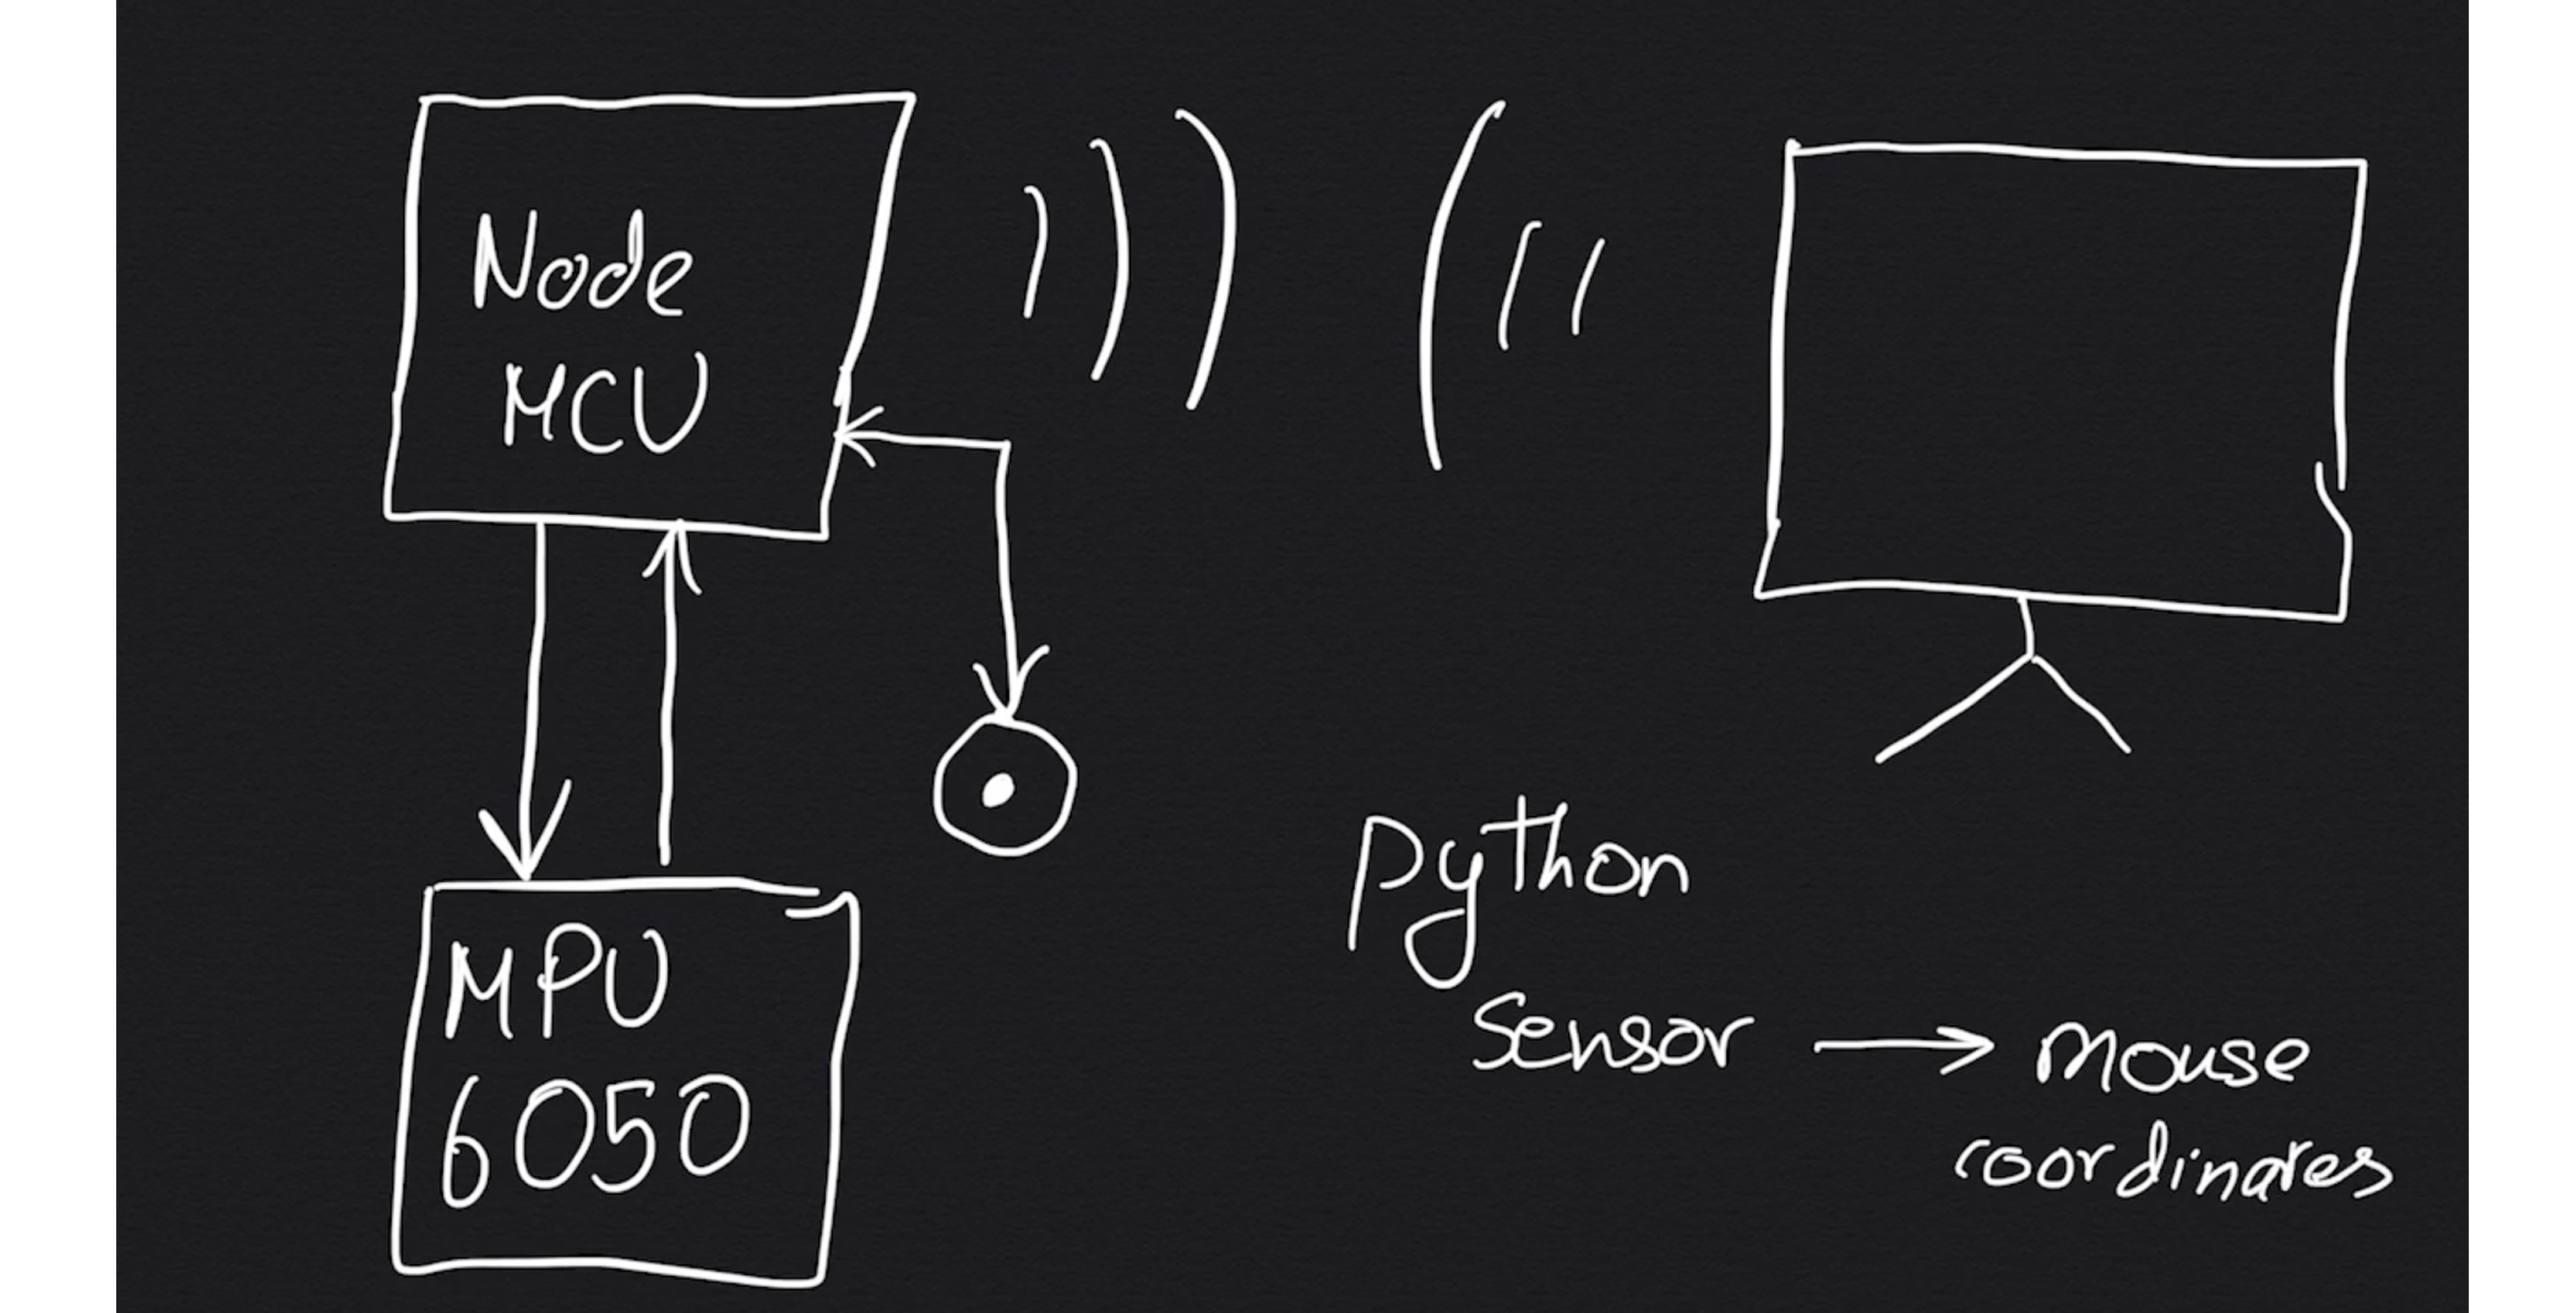 Node
MCU
MPU
6050
python
Sensor → mouse
coordinates